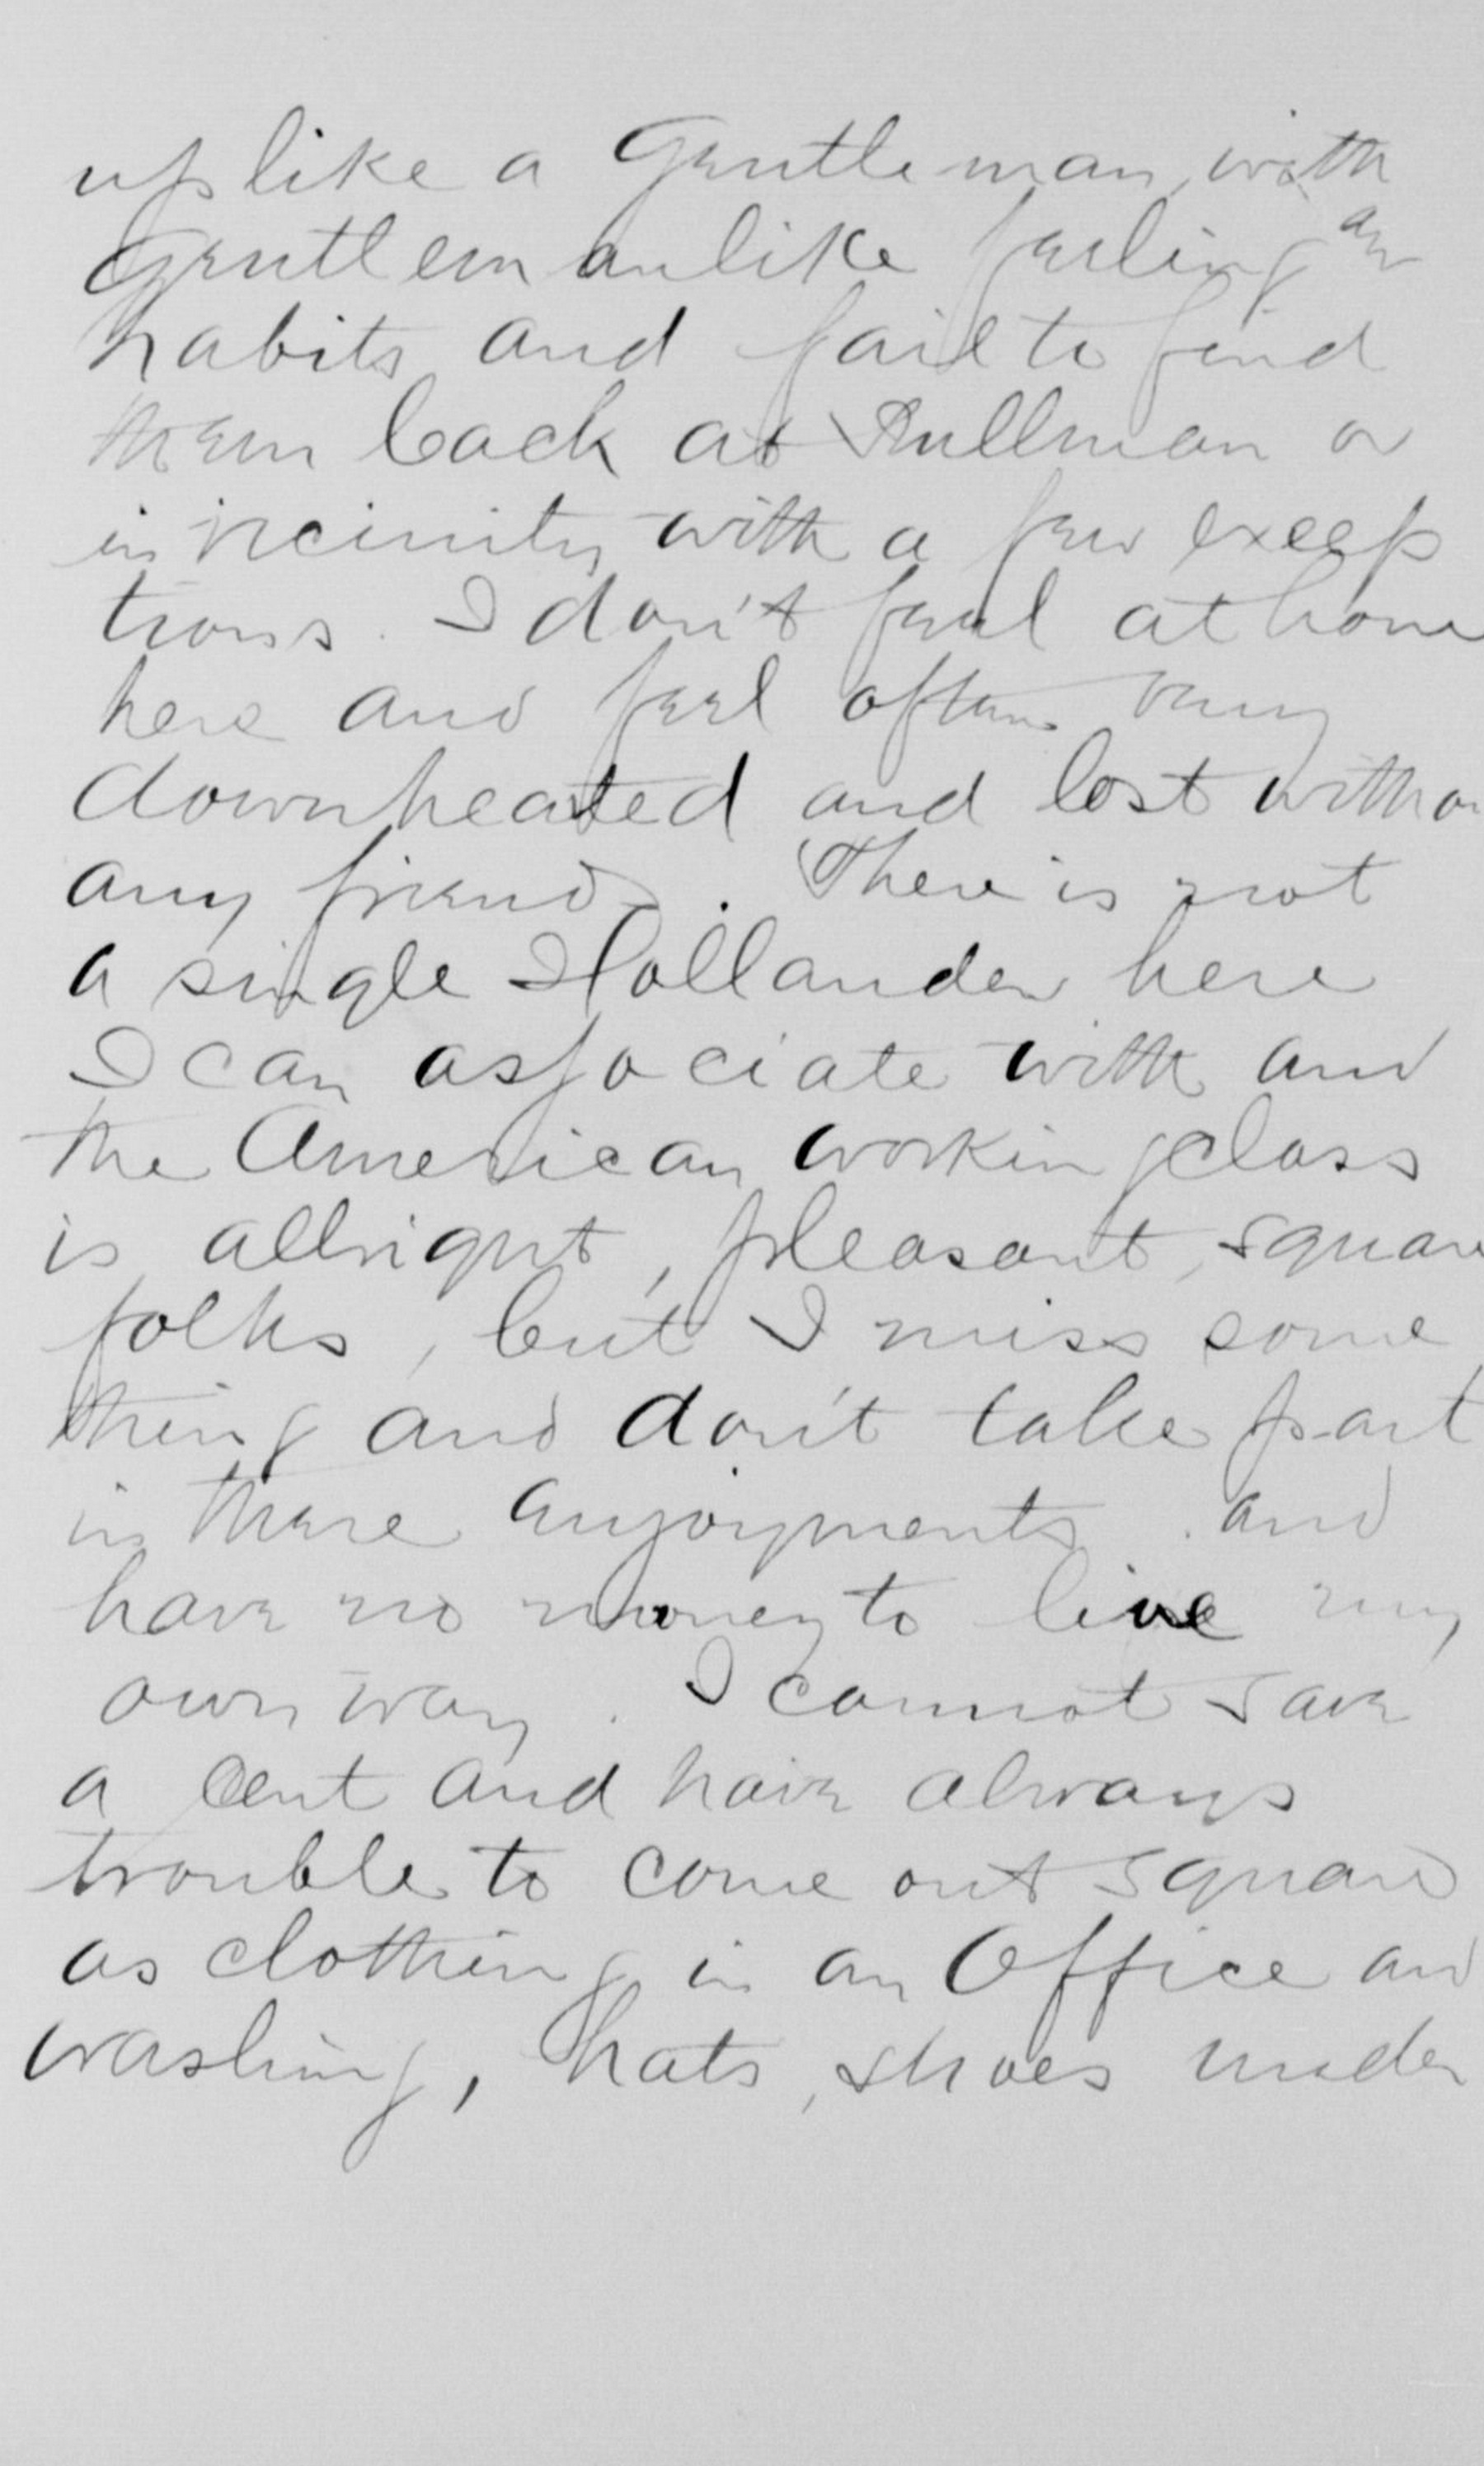 up like a Gentleman, with
Gentlemanlike feeling an
habits and fail to find
them back at Pullman or
in vicinity with a few excep
tions. I don't feel at home
here and feel often very
downheated and lost withou
any friends. There is not
a single Hollander here
I can associate with and
the American workingclass
is allright, pleasant, square
folks, but I miss some
thing and don't take part
in there anjoyments and
have no money to live my
own way. I cannot save
a Cent and have always
trouble to come out square
as clothing in an Office and
washing, hats, shoes under